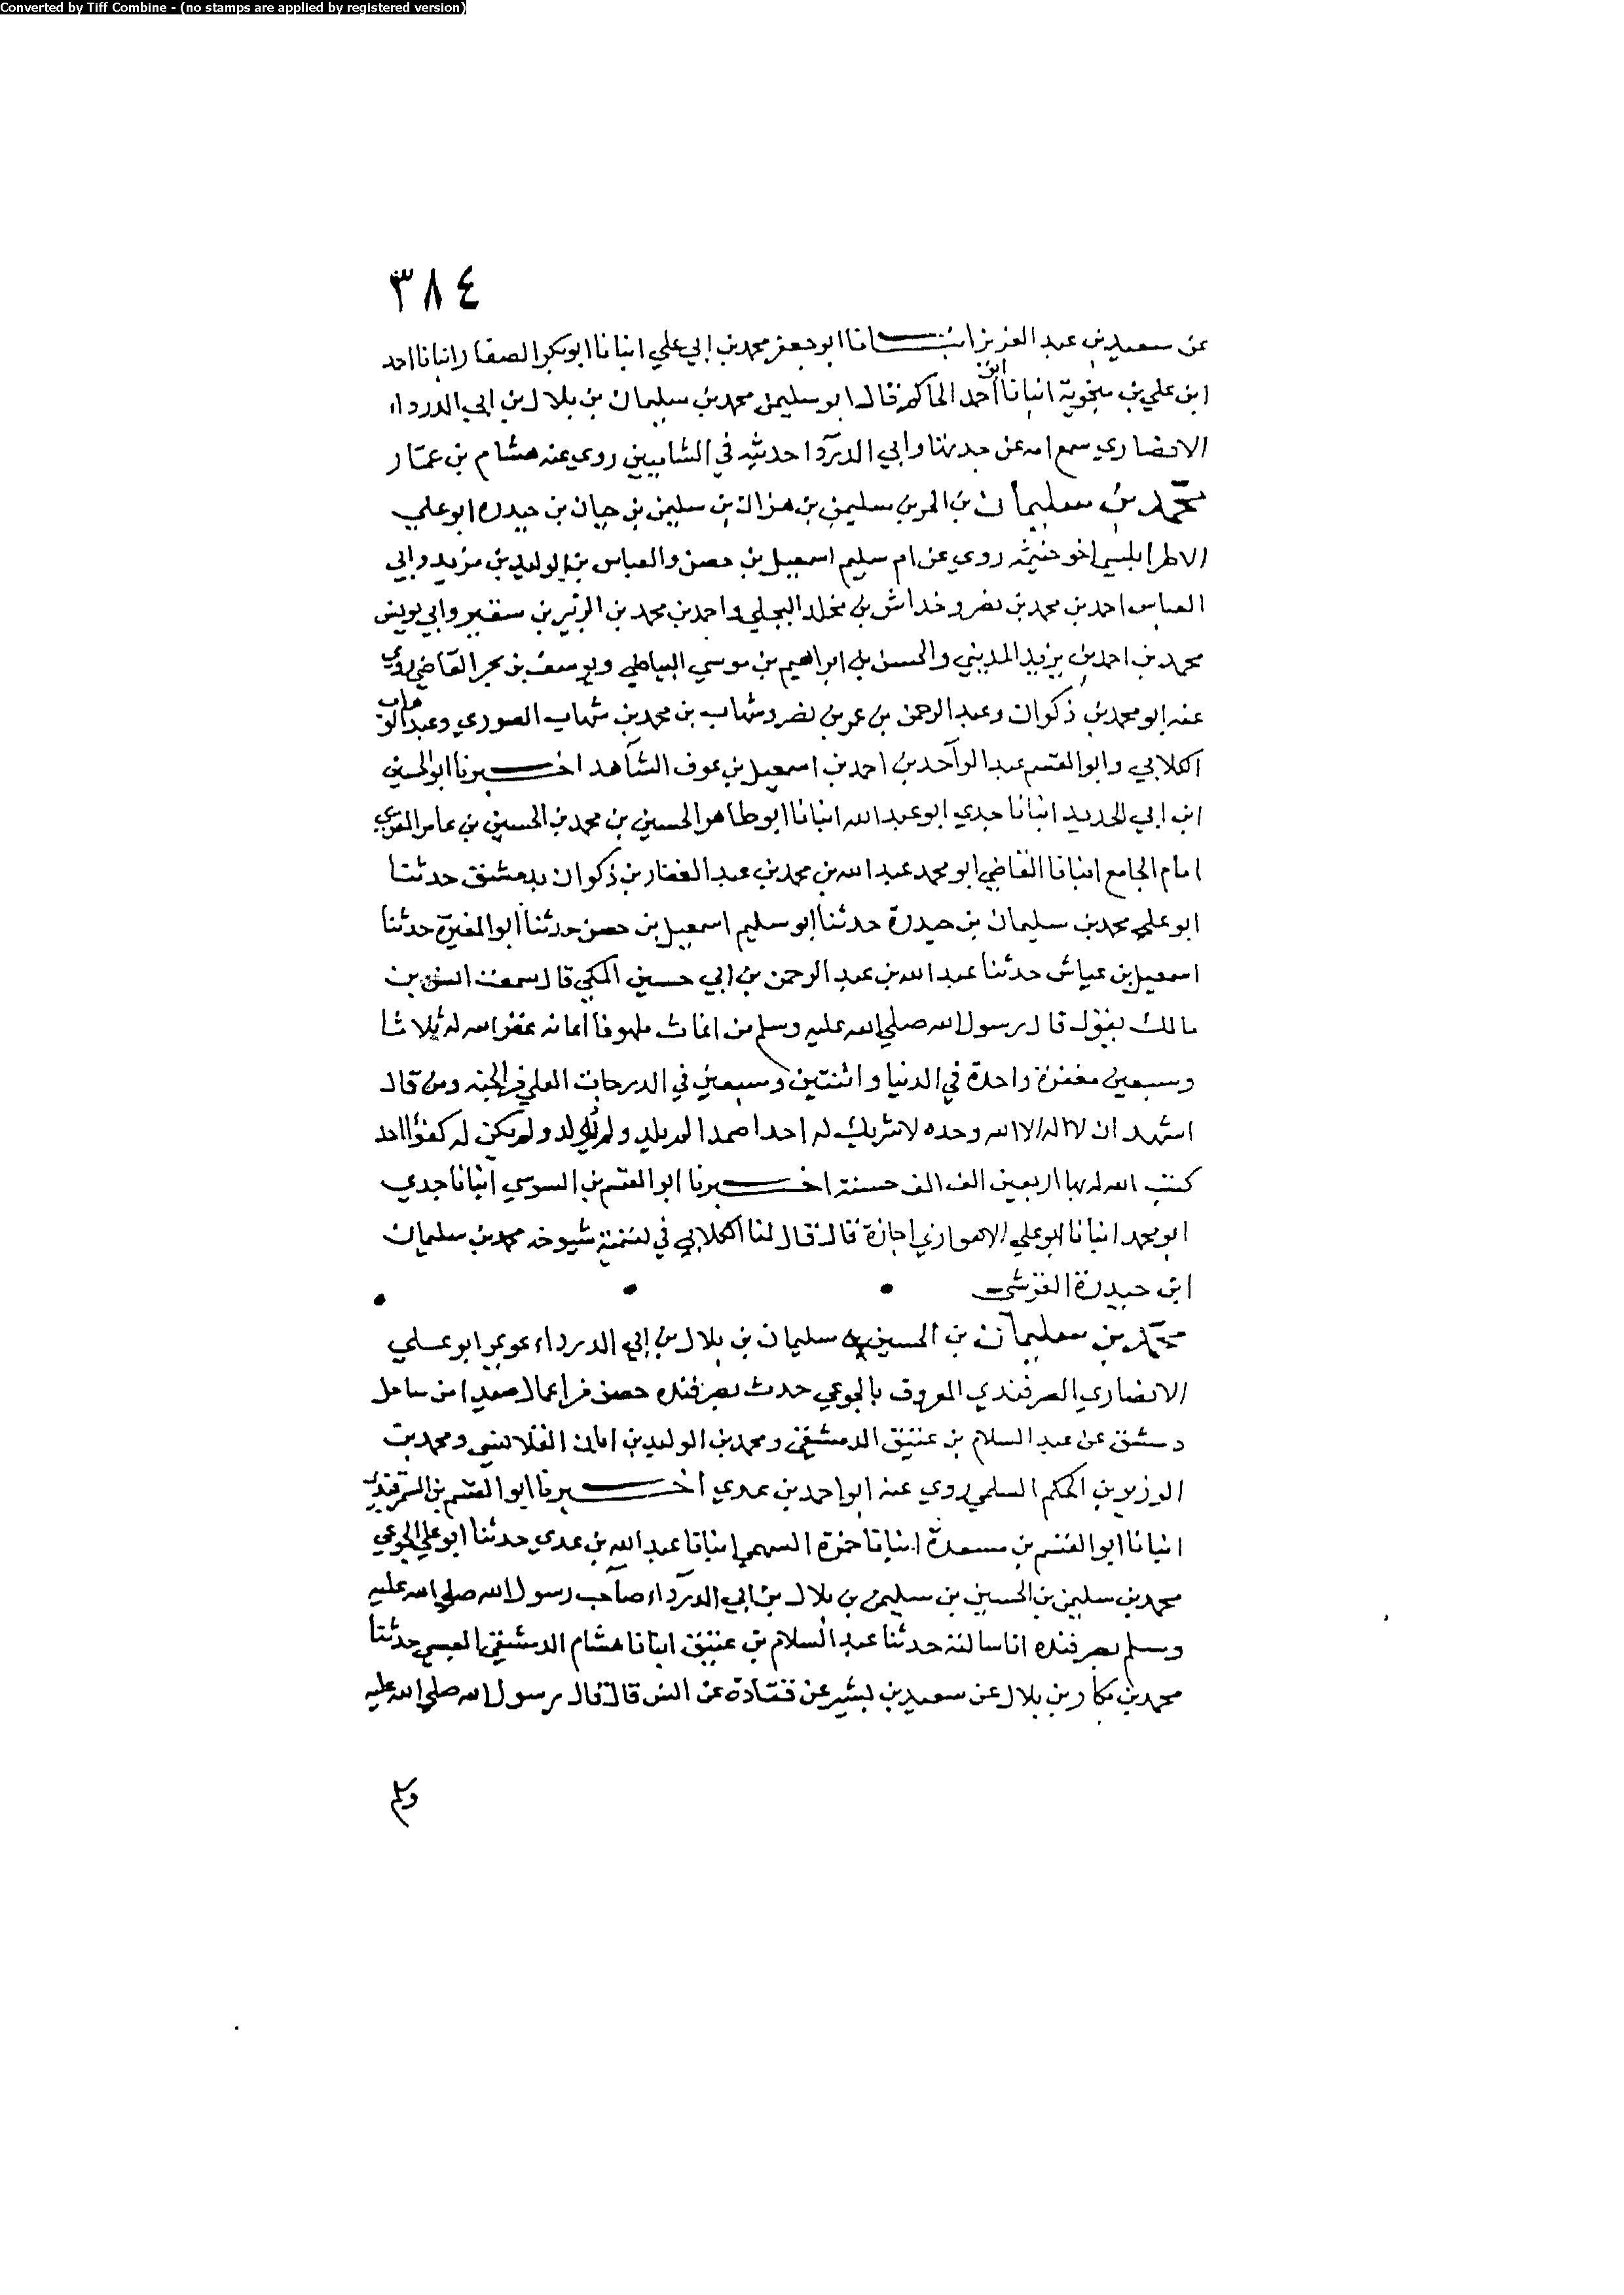 Converted by Tiff Combine - (no stamps are applied by registered version)
٣٨٤
عن سعيد بن عبد العزيز انبانا ابو جعفر محمد بن ابي علي انبانا ابو بكر الصفار انبانا احمد
ابن علي بن منجوية انبانا ابو احمد الحاكم قال ابو سليمن محمد بن سليمان بن بلال بن ابي الدرداء
الانصاري سمع امه عن جدتها وابي الدردا حديثه في الشاميين روى عنه هشام بن عمار
محمد بن سليمان بن الحر بن سليمن بن هزان بن سليمن بن حيان بن حيدره ابو علي
الاطرابلسي اخو خثيمه روي عن ام سليم اسمعيل بن حصن والعباس بن الوليد بن مزيد وابي
العباس احمد بن محمد بن نصر وخداش بن مخلد البجلي واحمد بن محمد بن الزبير بن سقير وابي يونس
محمد بن احمد بن يزيد المديني والحسن بن ابراهيم بن موسي البياطي ويوسف بن بحر القاضي روي
عنه ابو محمد بن ذكوان وعبد الرحمن بن عمر بن نصر وشهاب بن محمد بن شهاب الصوري وعبد الوهاب
الكلابي وابو القسم عبد الواحد بن احمد بن اسمعيل بن عوف الشاهد اخبرنا ابو الحسين
ابن ابي الحديد انبانا جدي ابو عبد الله انبانا ابو طاهر الحسين بن محمد بن الحسين بن عامر المقري
امام الجامع انبانا القاضي ابو محمد عبد الله بن محمد بن عبد الغفار بن ذكوان بدمشق حدثنا
ابو علي محمد بن سليمان بن حيدرة حدثنا ابو سليم اسمعيل بن حصن حدثنا ابو المغيرة حدثنا
اسمعيل بن عياش حدثنا عبد الله بن عبد الرحمن بن ابي حسين المكي قال سمعت انس بن
مالك يقول قال رسول الله صلي الله عليه وسلم من اغاث ملهوفا اعانه غفر الله له ثلاثا
وسبعين مغفرة واحدة في الدنيا واثنتين وسبعين في الدرجات العلي في الجنه ومن قال
اشهد ان لا اله الا الله وحده لا شريك له احدا صمدا لم يلد ولم يولد ولم يكن له كفوا احد
كتب الله له بها اربعين الف الف حسنة اخبرنا ابو القسم بن السوسي انبانا جدي
ابو محمد انبانا ابو علي الاهوازي اجازة قال قال لنا الكلابي في تسمية شيوخه محمد بن سليمان
ابن حيدرة القرشي
محمد بن سليمان بن الحسين بن سليمان بن بلال بن ابي الدرداء عويمر ابو علي
الانصاري الصرفندي المعروف بالجوعي حدث بصرفنده حصن من اعمال صيدا من ساحل
دمشق عن عبد السلام بن عتيق الدمشقي ومحمد بن الوليد بن ابان القلانسي ومحمد بن
الوزير بن الحكم السلمي روي عنه ابو احمد بن عدي اخبرنا ابو القسم بن السمرقندي
انبانا ابو القسم بن مسعدة انبانا حمزة السهمي انبانا عبد الله بن عدي حدثنا ابو علي الجوعي
محمد بن سليمن بن الحسين بن سليمن بن بلال بن ابي الدرداء صاحب رسول الله صلي الله عليه
وسلم بصرفنده انا سالته حدثنا عبد السلام بن عتيق انبانا هشام الدمشقي العبسي حدثنا
محمد بن بكار بن بلال عن سعيد بن بشير عن قتادة عن انس قال قال رسول الله صلي الله عليه
وسلم